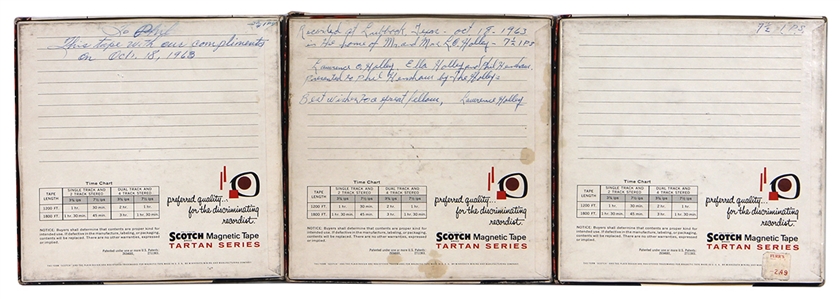 To Phil
This tape with our compliments
on Oct. 18, 1963
Time Chart
TAPE LENGTH
SINGLE TRACK AND 2 TRACK STEREO
DUAL TRACK AND 4 TRACK STEREO
3¾ ips 7½ ips 3¾ ips 7½ ips
1200 FT. 1 hr. 30 min. 2 hr. 1 hr.
1800 FT. 1 hr. 30 min. 45 min. 3 hr. 1 hr. 30 min.
preferred quality...
for the discriminating
recordist.
NOTICE: Buyers shall determine that contents are proper kind for
intended use. If defective in the manufacture, labeling, or packaging,
contents will be replaced. There are no other warranties, expressed
or implied.
SCOTCH Magnetic Tape
TARTAN SERIES
Recorded at Lubbock Texas - Oct 18 - 1963
in the home of Mr and Mrs L.O. Holley - 7½ IPS
Lawrence O. Holley, Ella Holley and Phil
presented to Phil by the Holleys
Best wishes to a great fellow, Lawrence Holley
Time Chart
TAPE LENGTH
SINGLE TRACK AND 2 TRACK STEREO
DUAL TRACK AND 4 TRACK STEREO
3¾ ips 7½ ips 3¾ ips 7½ ips
1200 FT. 1 hr. 30 min. 2 hr. 1 hr.
1800 FT. 1 hr. 30 min. 45 min. 3 hr. 1 hr. 30 min.
preferred quality...
for the discriminating
recordist.
NOTICE: Buyers shall determine that contents are proper kind for
intended use. If defective in the manufacture, labeling, or packaging,
contents will be replaced. There are no other warranties, expressed
or implied.
SCOTCH Magnetic Tape
TARTAN SERIES
7½ IPS
Time Chart
TAPE LENGTH
SINGLE TRACK AND 2 TRACK STEREO
DUAL TRACK AND 4 TRACK STEREO
3¾ ips 7½ ips 3¾ ips 7½ ips
1200 FT. 1 hr. 30 min. 2 hr. 1 hr.
1800 FT. 1 hr. 30 min. 45 min. 3 hr. 1 hr. 30 min.
preferred quality...
for the discriminating
recordist.
NOTICE: Buyers shall determine that contents are proper kind for
intended use. If defective in the manufacture, labeling, or packaging,
contents will be replaced. There are no other warranties, expressed
or implied.
SCOTCH Magnetic Tape
TARTAN SERIES